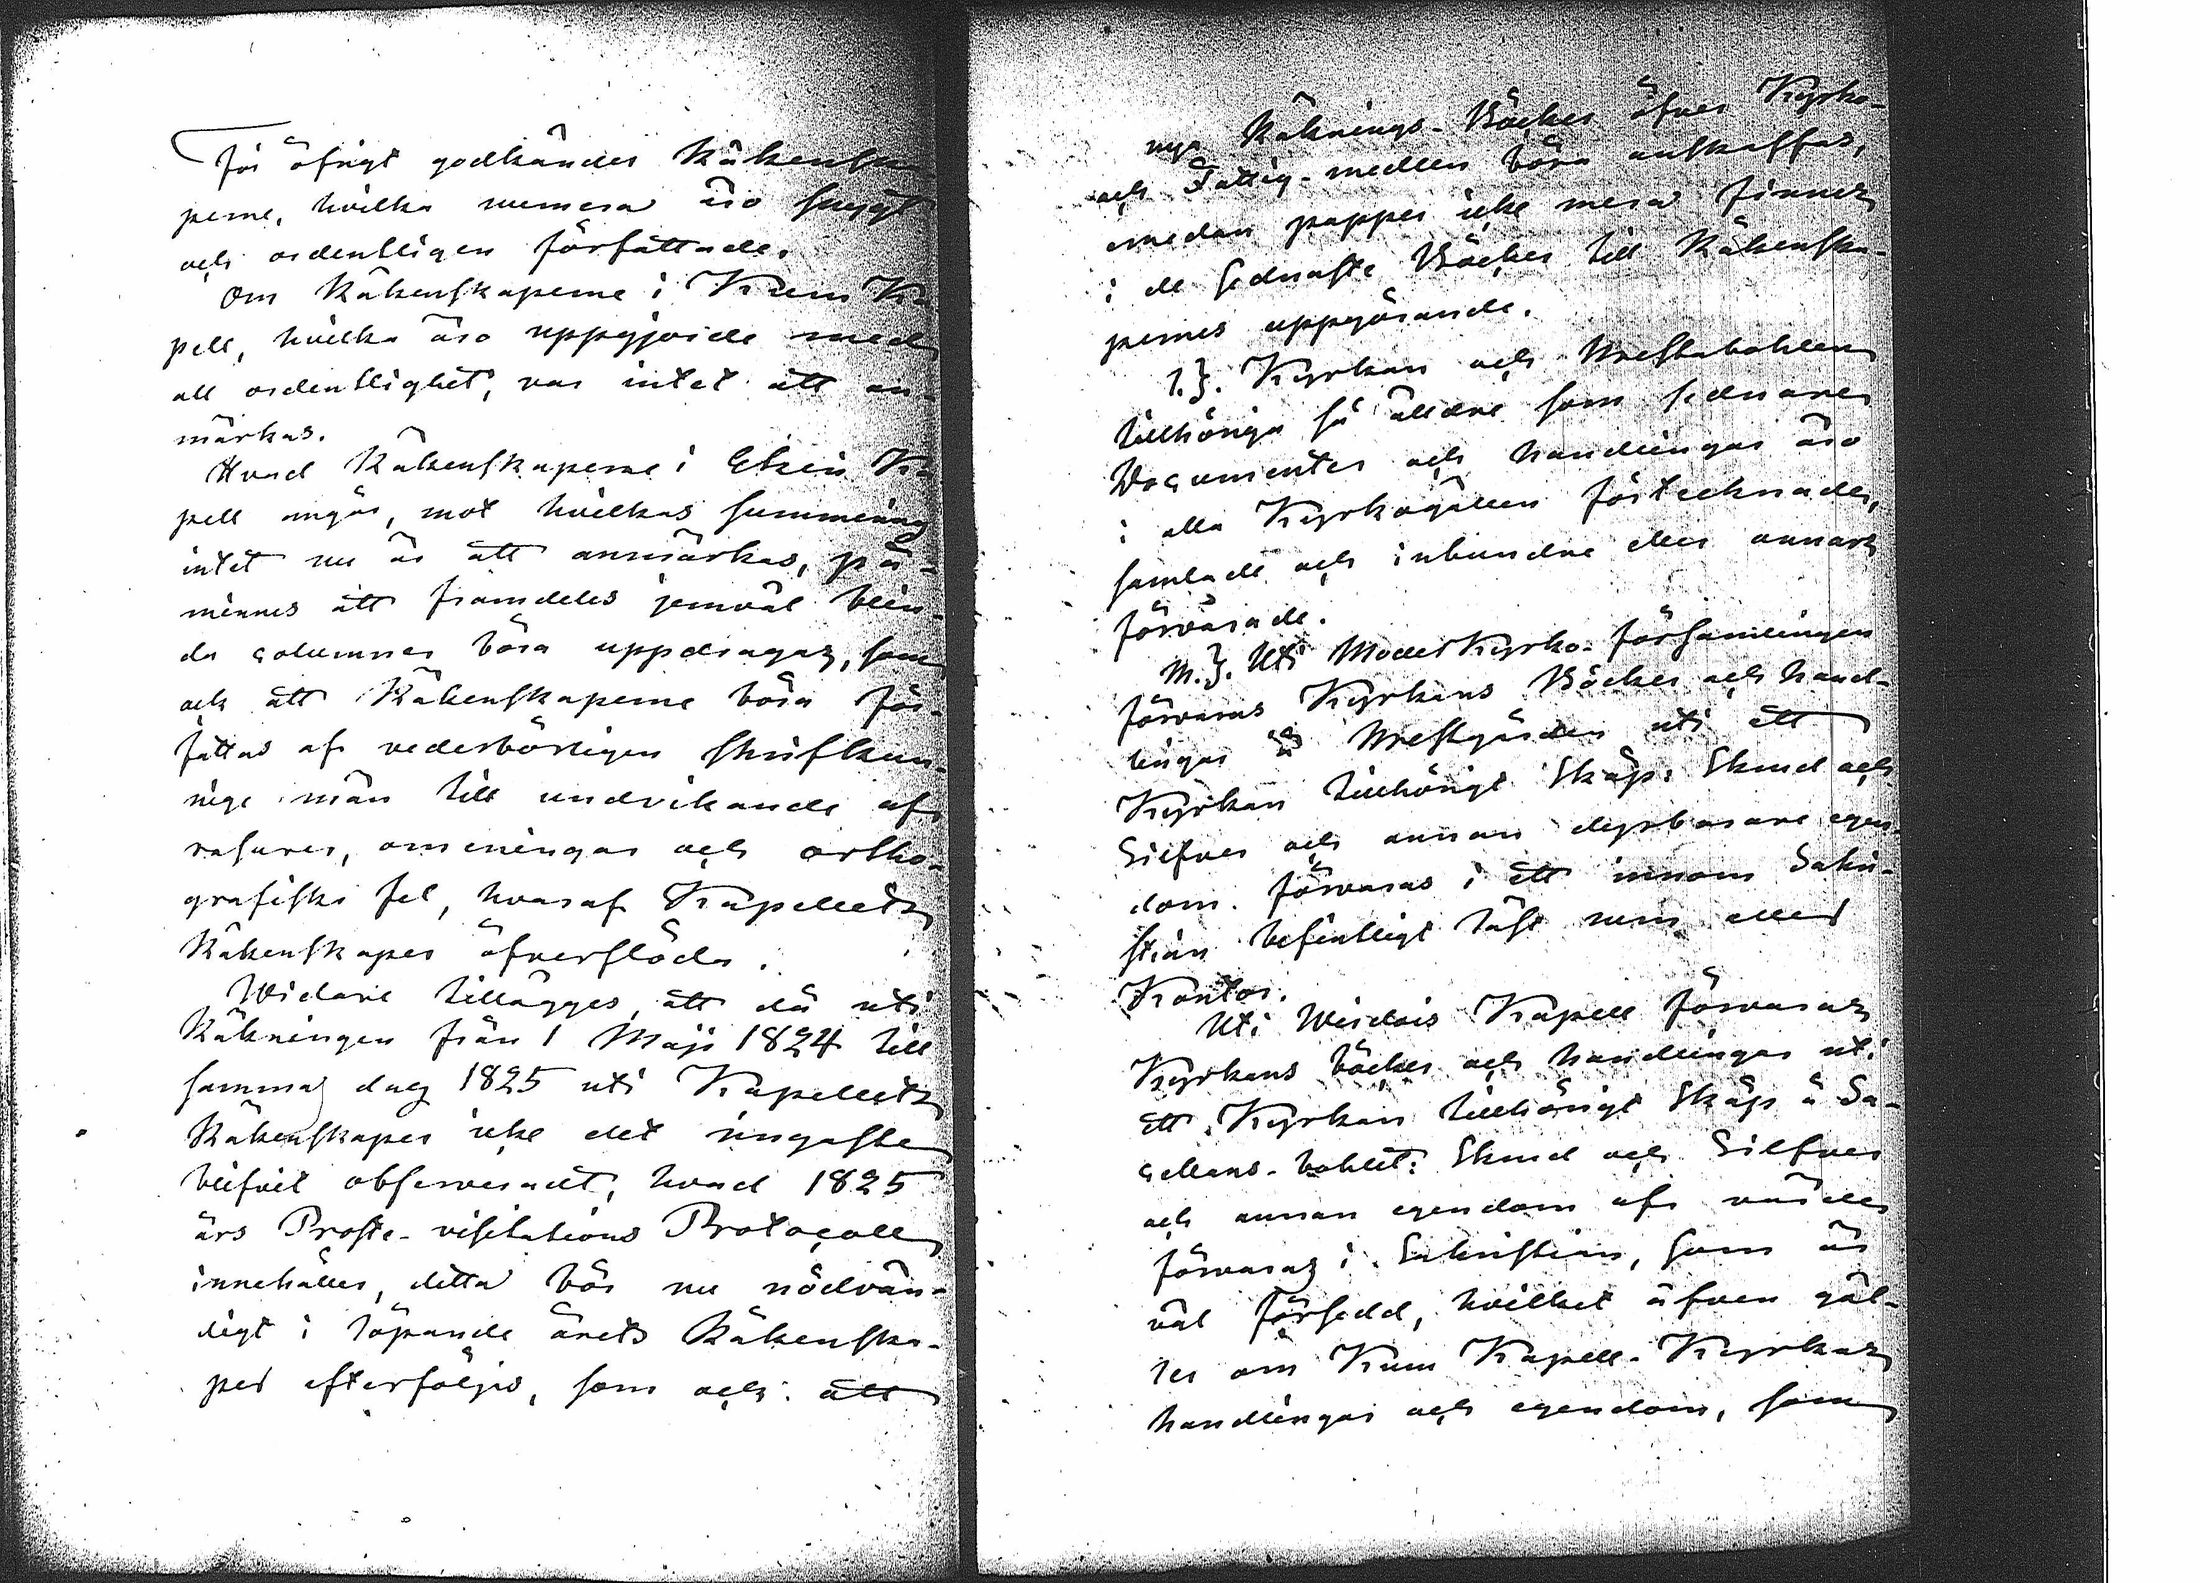 För öfrigt godkändes Räkenska-
perne, hvilka numera äro snyggt
och ordentligen författade.
Om Räkenskaperne i Kum Ka-
pell, hvilka äro uppgjorde med
all ordentlighet, var intet att an-
märkas.
Hvad Räkenskaperne i Esken Ka-
pell angår, mot hvilkas summering
intet nu är att anmärkas, på-
minnes att framdeles jemväl blin-
da columner böra uppdragas, som
ock att Räkenskaperne böra för-
fattas af vederbörligen skrifkun-
nige män till undvikande af
rasurer, omeningar och ortho-
grafiska fel, hvaraf Kapellets
Räkenskaper öfverflöda.
Widare tillägges, att då uti
Räkningen från 1 Maji 1824 till
samma dag 1825 uti Kapellets
Räkenskaper icke det ringaste
blifvit observeradt, hvad 1825
års Proste-visitations Protocoll
innehåller, detta bör nu nödvän-
digt i löpande årets Räkenska-
per efterföljas, som ock att
nya Räknings-Böcker öfver Kyrko-
och Fattig-medlen böra anskaffas,
emedan papper icke mera finnes
i de sednaste Böcker till Räkenska-
pernes uppgörande.
l.}. Kyrkan och Prestabohlen
tillhöriga så äldre som sednare
Documenter och handlingar äro
i alla Kyrkogällen förtecknade,
samlade och inbundne eller annars
förvarade.
m.}. Uti ModerKyrko-församlingen
förvaras Kyrkans Böcker och hand-
lingar å Prestgården uti ett
Kyrkan tillhörigt Skåp: Skrud och
Silfver och annan dyrbarare egen-
dom förvaras i ett innom Sakri-
stian befintligt låst rum eller
Kontor.
Uti Kapell förvaras
Kyrkans böcker och handlingar uti
ett Kyrkan tillhörigt Skåp å Sa-
cellans-bohlet: Skrud och Silfver
och annan egendom af värde
förvaras i Sakristian, som är
väl försedd, hvilket äfven gäl-
ler om Kum Kapell-Kyrkas
handlingar och egendom, som